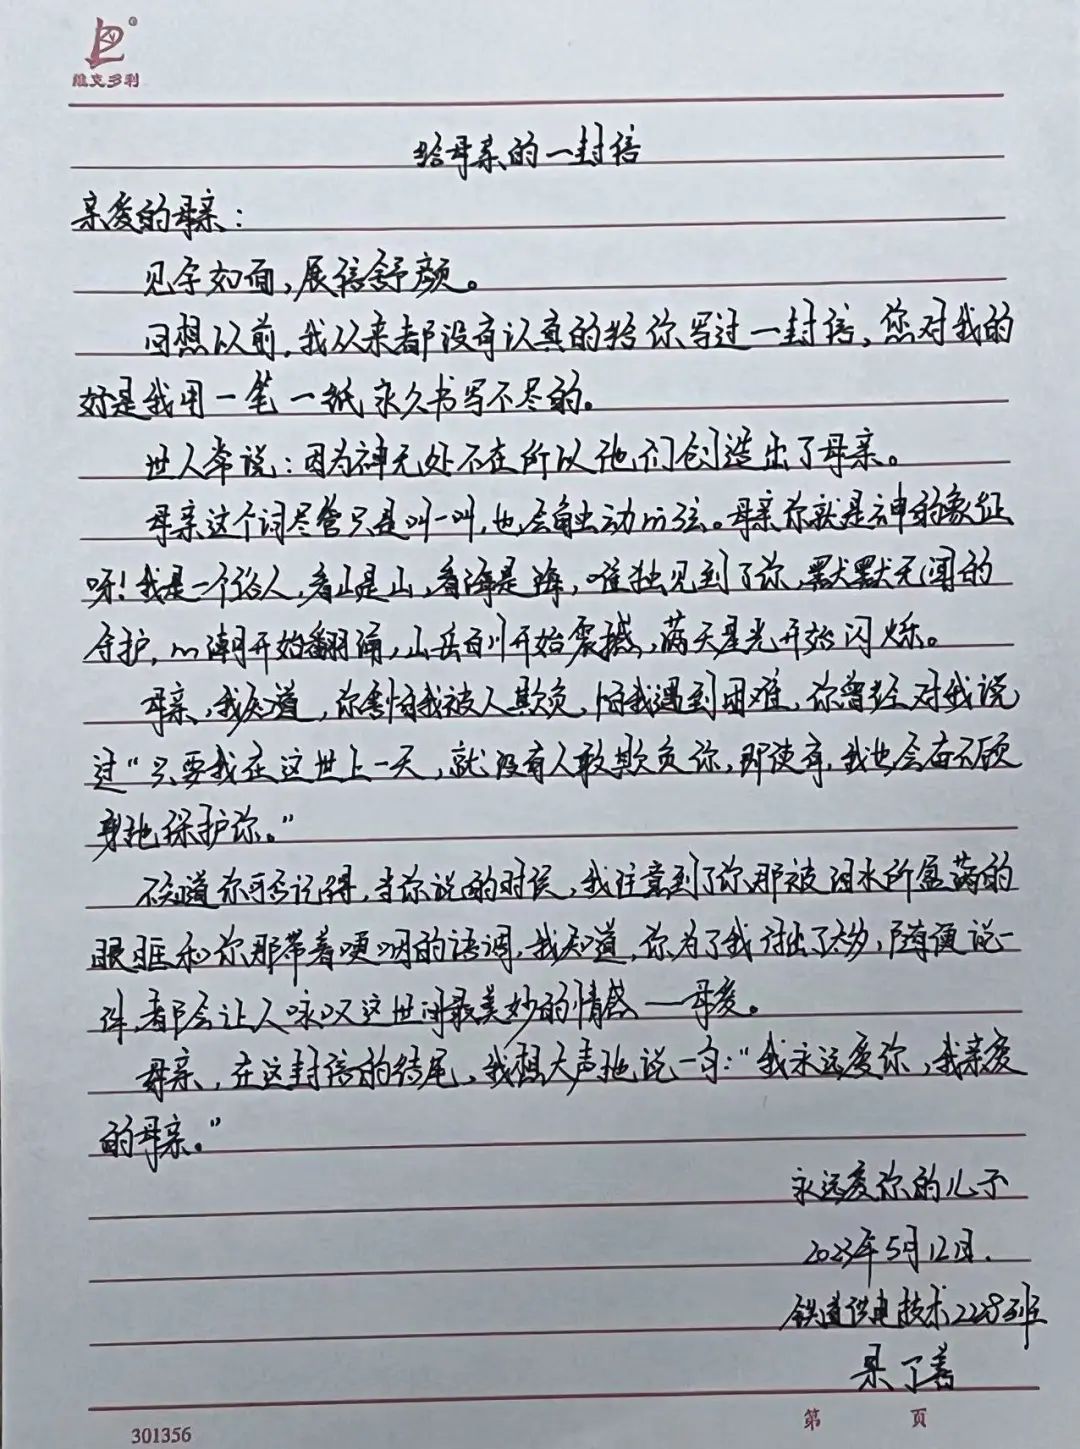 维克多利
给母亲的一封信
亲爱的母亲：
见字如面，展信舒颜。
回想以前，我从来都没有认真的给你写过一封信，您对我的
好是我用一笔一纸永久书写不尽的。
世人常说：因为神无处不在所以他们创造出了母亲。
母亲这个词尽管只是叫一叫，也会触动心弦。母亲你就是神的象征
呀！我是一个俗人，看山是山，看海是海，唯独见到了你默默无闻的
守护，心潮开始翻涌，山岳百川开始震撼，满天星光开始闪烁。
母亲，我知道，你害怕我被人欺负，怕我遇到困难，你曾经对我说
过“只要我在这世上一天，就没有人敢欺负你，即使有，我也会奋不顾
身地保护你。”
不知道你可否记得，当你说的时候，我注意到了你那被泪水所盈满的
眼眶和你那带着哽咽的语调，我知道，你为了我付出了太多，随便说一
件，都会让人咏叹这世间最美妙的情感——母爱。
母亲，在这封信的结尾，我想大声地说一句：“我永远爱你，我亲爱
的母亲。”
永远爱你的儿子
2023年5月12日.
铁道供电技术2228班
了善
第 页
301356